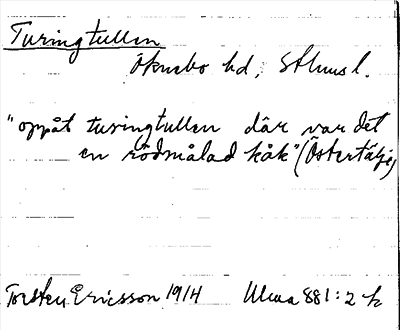 Turingtullen
Öknebo hd, Sthmsl.
"oppåt turingtullen där var det
en rödmålad kåk" (Östertälje)
Torsten Ericsson 1914 Ulma 881:2 k